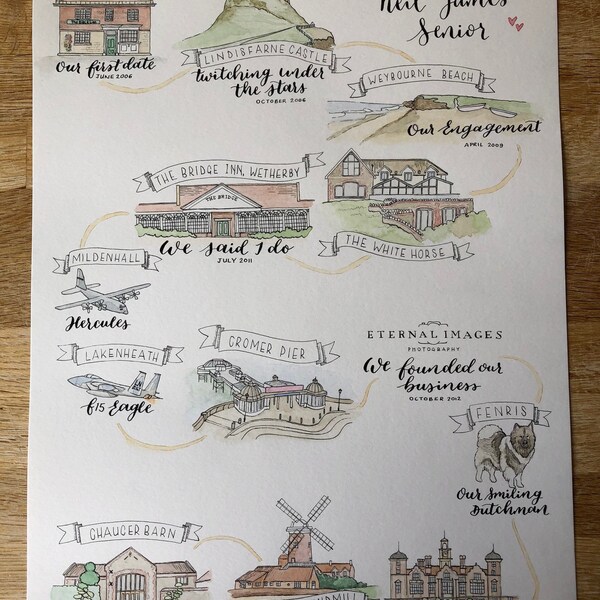 Neil James
Senior
LINDISFARNE CASTLE
Our first date
JUNE 2006
twitching under
the stars
OCTOBER 2006
WEYBOURNE BEACH
Our Engagement
APRIL 2009
THE BRIDGE INN, WETHERBY
THE BRIDGE
We said I do
JULY 2011
THE WHITE HORSE
MILDENHALL
Hercules
LAKENHEATH
f15 Eagle
CROMER PIER
ETERNAL IMAGES
PHOTOGRAPHY
We founded our
business
OCTOBER 2012
FENRIS
Our Smiling
Dutchman
CHAUCER BARN